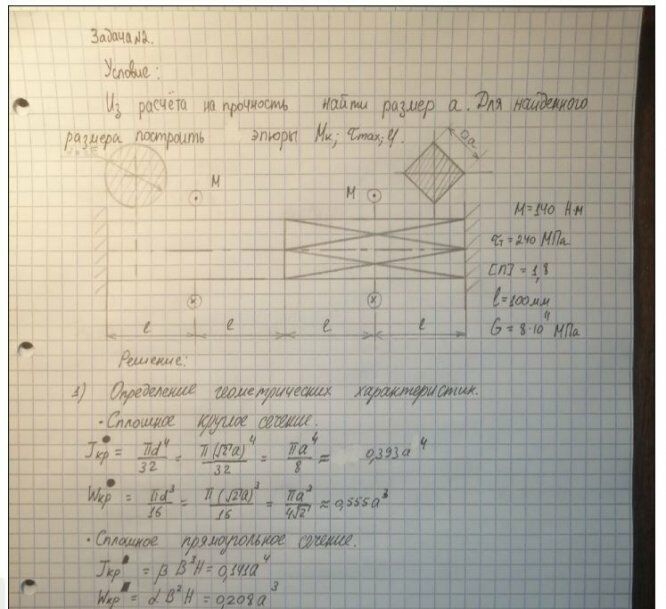 Задача №2.
Условие:
Из расчёта на прочность найти размер a. Для найденного
размера построить эпюры Mк; τmax; φ.
□a
M
M
M=140 Н·м
τт=240 МПа
[n]=1,8
l=100мм
G=8·10⁴ МПа
l l l l
Решение:
1) Определение геометрических характеристик.
· Сплошное круглое сечение.
Jкр● = πd⁴/32 = π(√2a)⁴/32 = πa⁴/8 ≈ 0,393a⁴
Wкр● = πd³/16 = π(√2a)³/16 = πa³/4√2 ≈ 0,555a³
· Сплошное прямоугольное сечение.
Jкр■ = βB³H=0,141a⁴
Wкр■ = αB²H=0,208a³